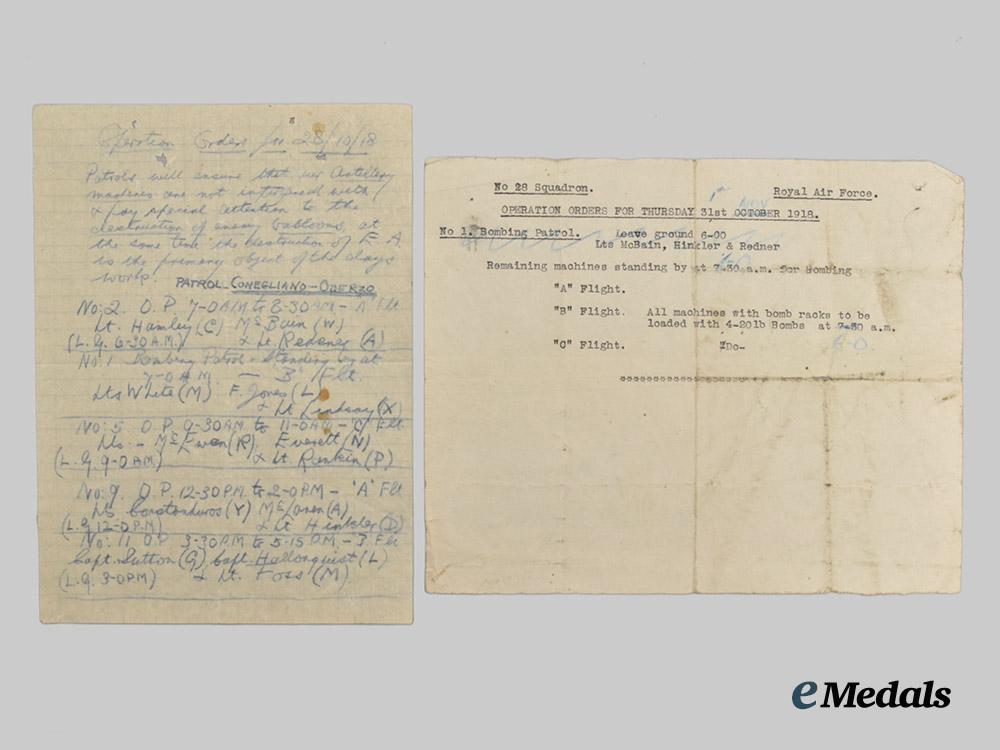 Operation Orders for 28/10/18
Patrols will ensure that our Artillery
machines are not interfered with
& pay special attention to the
destruction of enemy balloons, at
the same time the destruction of E.A.
is the primary object of the days
work.
PATROL CONEGLIANO-ODERZO
No: 2. O.P. 7-0AM to 8-30AM - 'A' Flt
Lt. Hamley (C) McBain (W)
(L.G. 6-30A.M.) & Lt. Redener (A)
No: 1 Bombing Patrol - Standing by at
7-0AM. - 'B' Flt.
Lts White (M) F. Jones (L)
& Lt Lindsay (X)
No: 5. O.P. 9-30AM to 11-0AM - 'C' Flt
Lts: - McEwen (R), Everett (N)
(L.G. 9-0AM) & Lt. Rankin (P)
No: 9. O.P. 12-30PM to 2-0PM - 'A' Flt
Lts (Y) (A)
(L.G. 12-0P.M) & Lt Hinkler (D)
No: 11 O.P. 3-30PM to 5-15PM - Flt
Capt. Sutton (G), Capt. Hallonquist (L)
(L.G. 3-0PM) & Lt. Foss (M)
No 28 Squadron. Royal Air Force.
1st NOV
OPERATION ORDERS FOR THURSDAY 31st OCTOBER 1918.
No 1. Bombing Patrol. Leave ground 6-00
Lts McBain, Hinkler & Redner
Remaining machines standing by at 7-30 a.m. for Bombing
"A" Flight.
"B" Flight. All machines with bomb racks to be
loaded with 4-20lb Bombs at 7-30 a.m.
"C" Flight. -Do-
eMedals